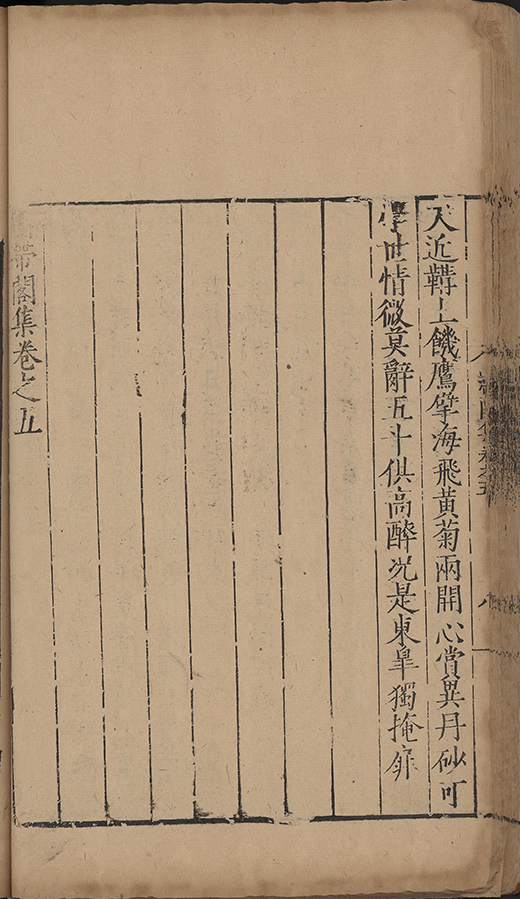 天近鞲上饑鷹掣海飛黃菊兩開心賞異丹砂可
學世情微莫辭五斗供高醉况是東臯獨掩扉
帶閣集卷之五